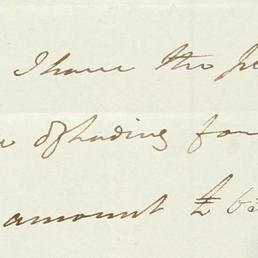 I have the
of lading for
amount £ 6